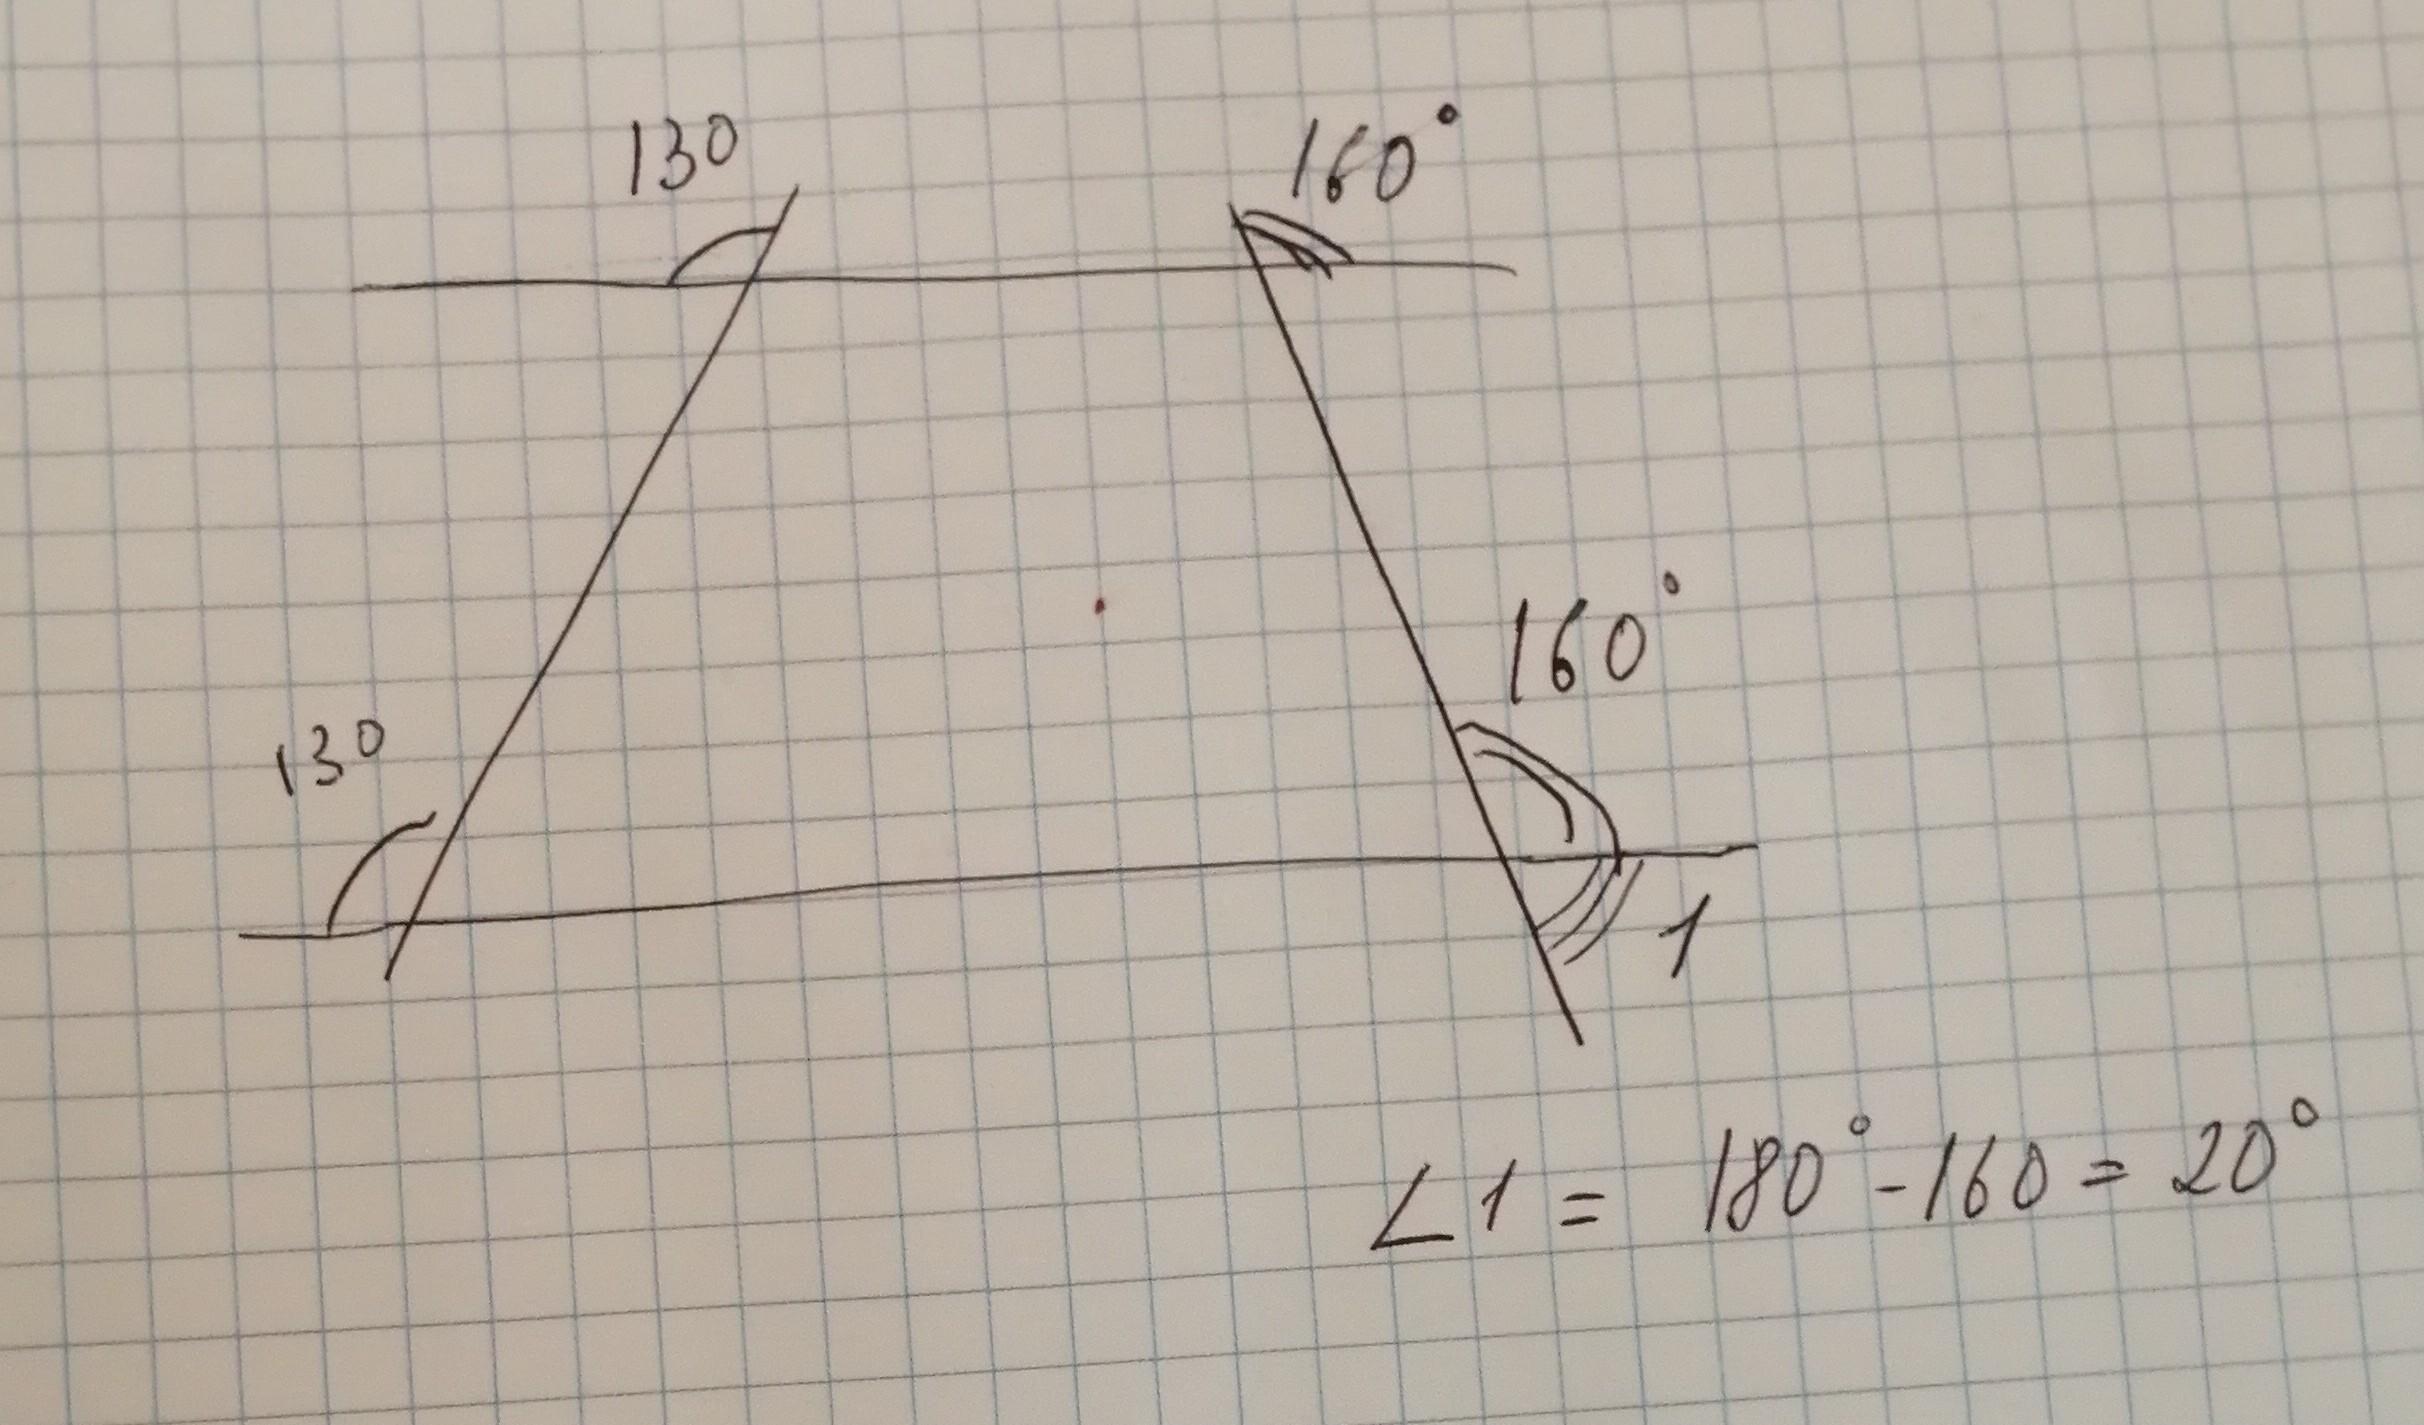 130
160°
160°
130
1
∠1 = 180° - 160 = 20°